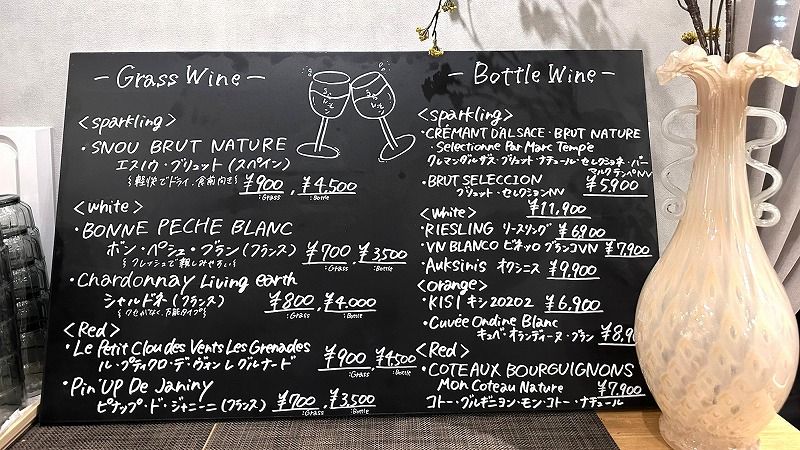 - Grass Wine -
<sparkling>
・SNOU BRUT NATURE
エスノウ・ブリュット(スペイン)
軽快でドライ.食前向き ¥900 :Grass , ¥4,500 :Bottle
<white>
・BONNE PECHE BLANC
ボン・ペシュ・ブラン(フランス) ¥700 :Grass , ¥3500 :Bottle
フレッシュで親しみやすい
・Chardonnay Living earth
シャルドネ(フランス) ¥800 :Grass , ¥4,000 :Bottle
クセがなく、万能タイプ
<Red>
・Le Petit Clou des Vents Les Grenades
ル・プティクロ・デ・ヴォン レ グルナード ¥900 :Grass , ¥4,500 :Bottle
・Pin'UP De Janiny
ピナップ・ド・ジャニーニ(フランス) ¥700 :Grass , ¥3,500 :Bottle
- Bottle Wine -
<sparkling>
・CRÉMANT DALSACE・BRUT NATURE
・Selectionne Par Marc Tempé
クレマンダルザス・ブリュット ナチュール・セレクショネ・パー
マルク テンペ NV
¥5,900
・BRUT SELECCION
ブリュット・セレクション NV
¥11,900
<white>
・RIESLING リースリング ¥6900
・VN BLANCO ビオッロ ブランコVN ¥7,900
・Auksinis オクシニス ¥9,900
<orange>
・KISI キシ 20202 ¥6,900
・Cuvée Ondine Blanc
キュベ オランディーヌ・ブラン ¥8,90
<Red>
・COTEAUX BOURGUIGNONS
Mon Coteau Nature ¥7,900
コトー・ブルギニヨン・モン・コトー・ナチュール